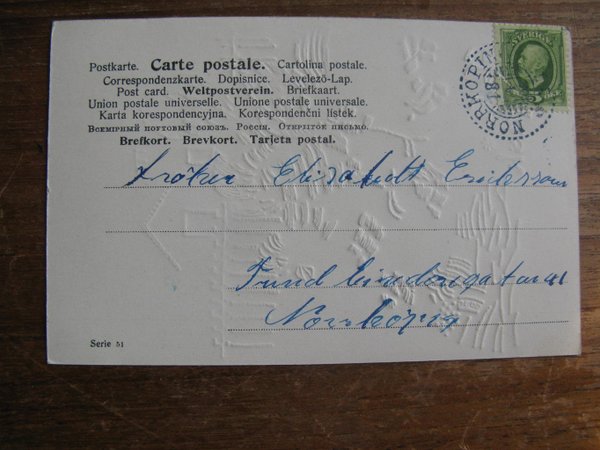 Postkarte. Carte postale. Cartolina postale.
Correspondenzkarte. Dopisnice. Levelező-Lap.
Post card. Weltpostverein. Briefkaart.
Union postale universelle. Unione postale universale.
Karta korespondencyjna. Korespondenční lístek.
Всемірный почтовый союзъ. Россія. Открытое письмо.
Brefkort. Brevkort. Tarjeta postal.
SVERIGE
5
NORRKÖPING
Fröken Elisabedt Eriksson
Norrköping
Serie 51